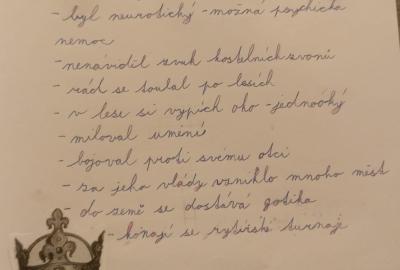 - byl neurotický - možná psychická
nemoc
- nenáviděl zvuk kostelních zvonů
- rád se toulal po lesích
- v lese si vypích oko - jednooký
- miloval umění
- bojoval proti svému otci
- za jeho vlády vzniklo mnoho měst
- do země se dostává gotika
- konají se rytířské turnaje